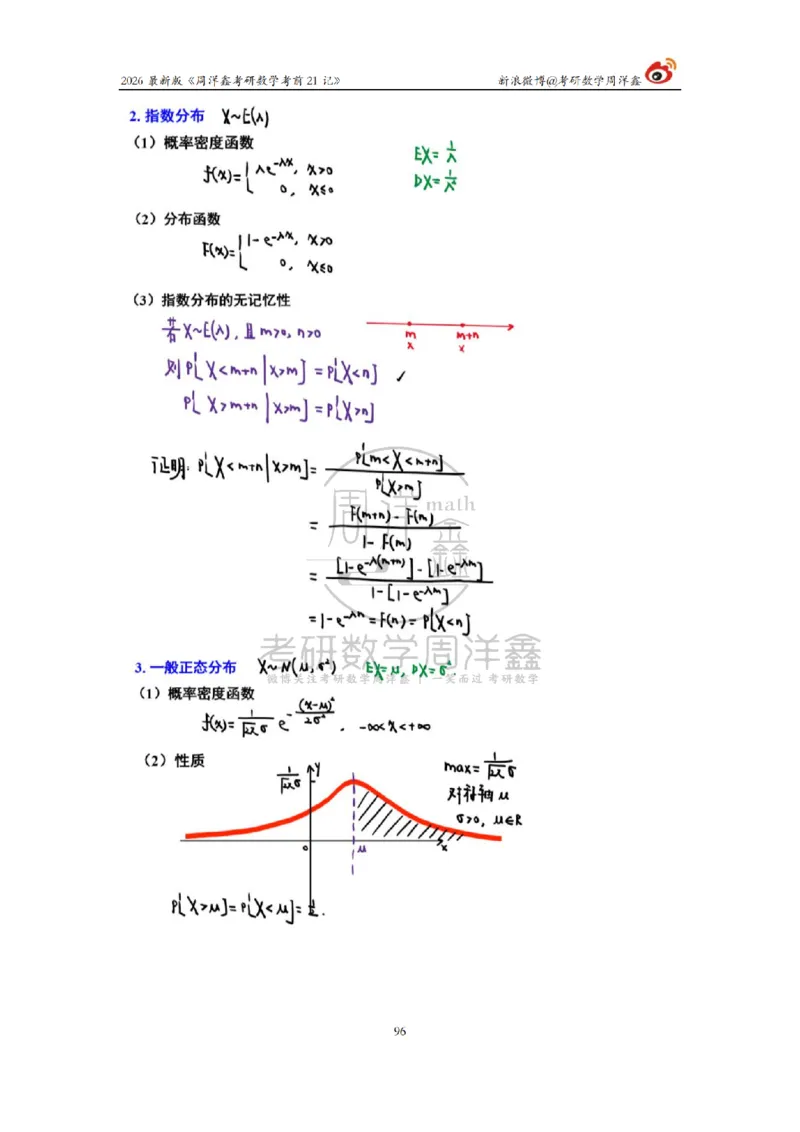 2026 最新版《周洋鑫考研数学考前 21 记》 新浪微博@考研数学周洋鑫
2. 指数分布 X~E(λ)
（1）概率密度函数
f(x)={ λe^{-λx}, x>0
0, x≤0
EX=1/λ
DX=1/λ²
（2）分布函数
F(x)={ 1-e^{-λx}, x>0
0, x≤0
（3）指数分布的无记忆性
若X~E(λ), 且 m>0, n>0
m m+n
x x
则 P{X<m+n | X>m}=P{X<n} ✓
P{X>m+n | X>m}=P{X>n}
证明: P{X<m+n | X>m}= P{m<X<m+n} / P{X>m}
= F(m+n)-F(m) / 1-F(m)
= [1-e^{-λ(m+n)}]-[1-e^{-λm}] / 1-[1-e^{-λm}]
=1-e^{-λn}=F(n)=P{X<n}
周洋鑫 math
考研数学周洋鑫
微博关注考研数学周洋鑫 | 一笑而过 考研数学
3. 一般正态分布 X~N(μ,σ²) EX=μ, DX=σ².
（1）概率密度函数
f(x)= 1/(√2π σ) e^{-(x-μ)²/2σ²}, -∞<x<+∞
（2）性质
1/(√2π σ) y
max= 1/(√2π σ)
对称轴 μ
σ>0, μ∈R
0 μ x
P{X>μ}=P{X<μ}=1/2.
96